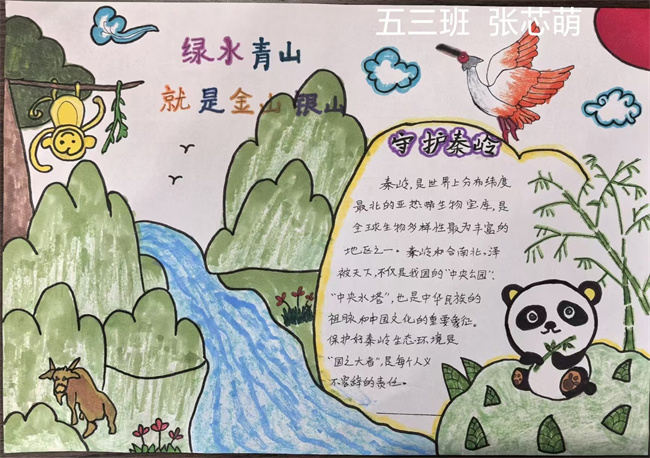 五三班 张芯萌
绿水青山
就是金山银山
守护秦岭
秦岭,是世界上分布纬度
最北的亚热带生物宝库,是
全球生物多样性最为丰富的
地区之一。秦岭和合南北、泽
被天下,不仅是我国的“中央公园”、
“中央水塔”,也是中华民族的
祖脉和中国文化的重要象征。
保护好秦岭生态环境是
“国之大者”,是每个人义
不容辞的责任。